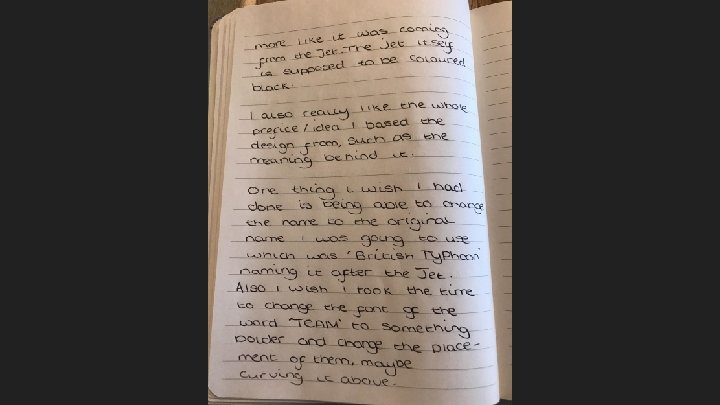 more like it was coming
from the Jet. The Jet itself
is supposed to be coloured
black.
I also really like the whole
prefice / idea I based the
design from, such as the
meaning behind it.
One thing i wish I had
done is being able to change
the name to the original
name I was going to use
which was 'British Typhoon'
naming it after the Jet.
Also i wish i took the time
to change the font of the
word 'TEAM' to something
bolder and change the place-
ment of them, maybe
curving it above.